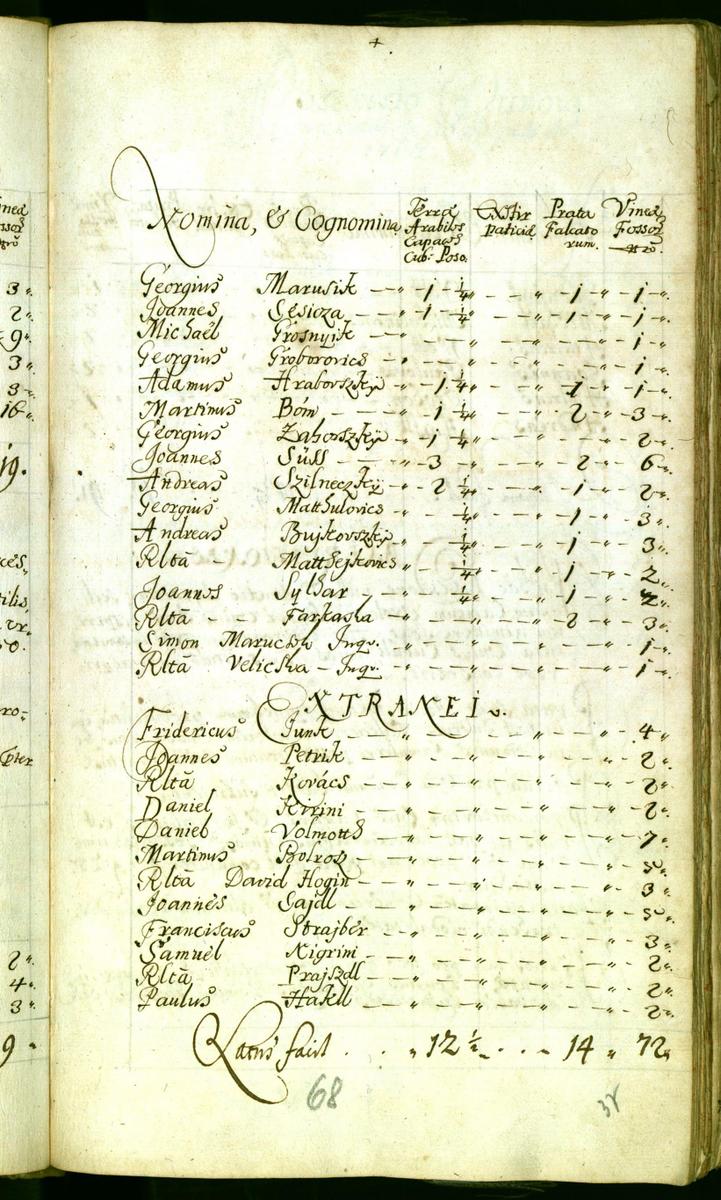 Nomina, & Cognomina Terræ Arabiles Capaces Cub: Poso. Exstirpatitiæ Prata Falcatorum. Vineæ Fossor
Georgius Marusik 1 1/4 1 1
Joannes 1 1/4 1 1
Michaël Grosnyik 1
Georgius Groborovics 1
Adamus Hrabovszky 1 1/4 1 1
Martinus Bóm 1 1/4 2 3
Georgius Zahorszky 1 1/4 2
Joannes Süll 3 2 6
Andreas Szilneczky 2 1/4 1 2
Georgius Matthulovics 1/4 1 3
Andreas Bujkovszky 1/4 1 3
Rltã Matthejkovics 1/4 1 2
Joannes Sylhar 1/4 1 2
Rltã Farkaska 2 3
Simon Marucsek Inqv. 1
Rltã Velicska Inqv. 1
EXTRANEI
Fridericus Junk 4
Joannes Petrik 2
Rltã Kovács 2
Daniel Kirini 2
Daniel Volmoth 7
Martinus 5
Rltã David Hogin 3
Joannes Gajdl 5
Franciscus Strajber 3
Samuel Nigrini 2
Rltã Prajszdl 2
Paulus Hakll 2
Latus facit 12 1/2 14 72
68